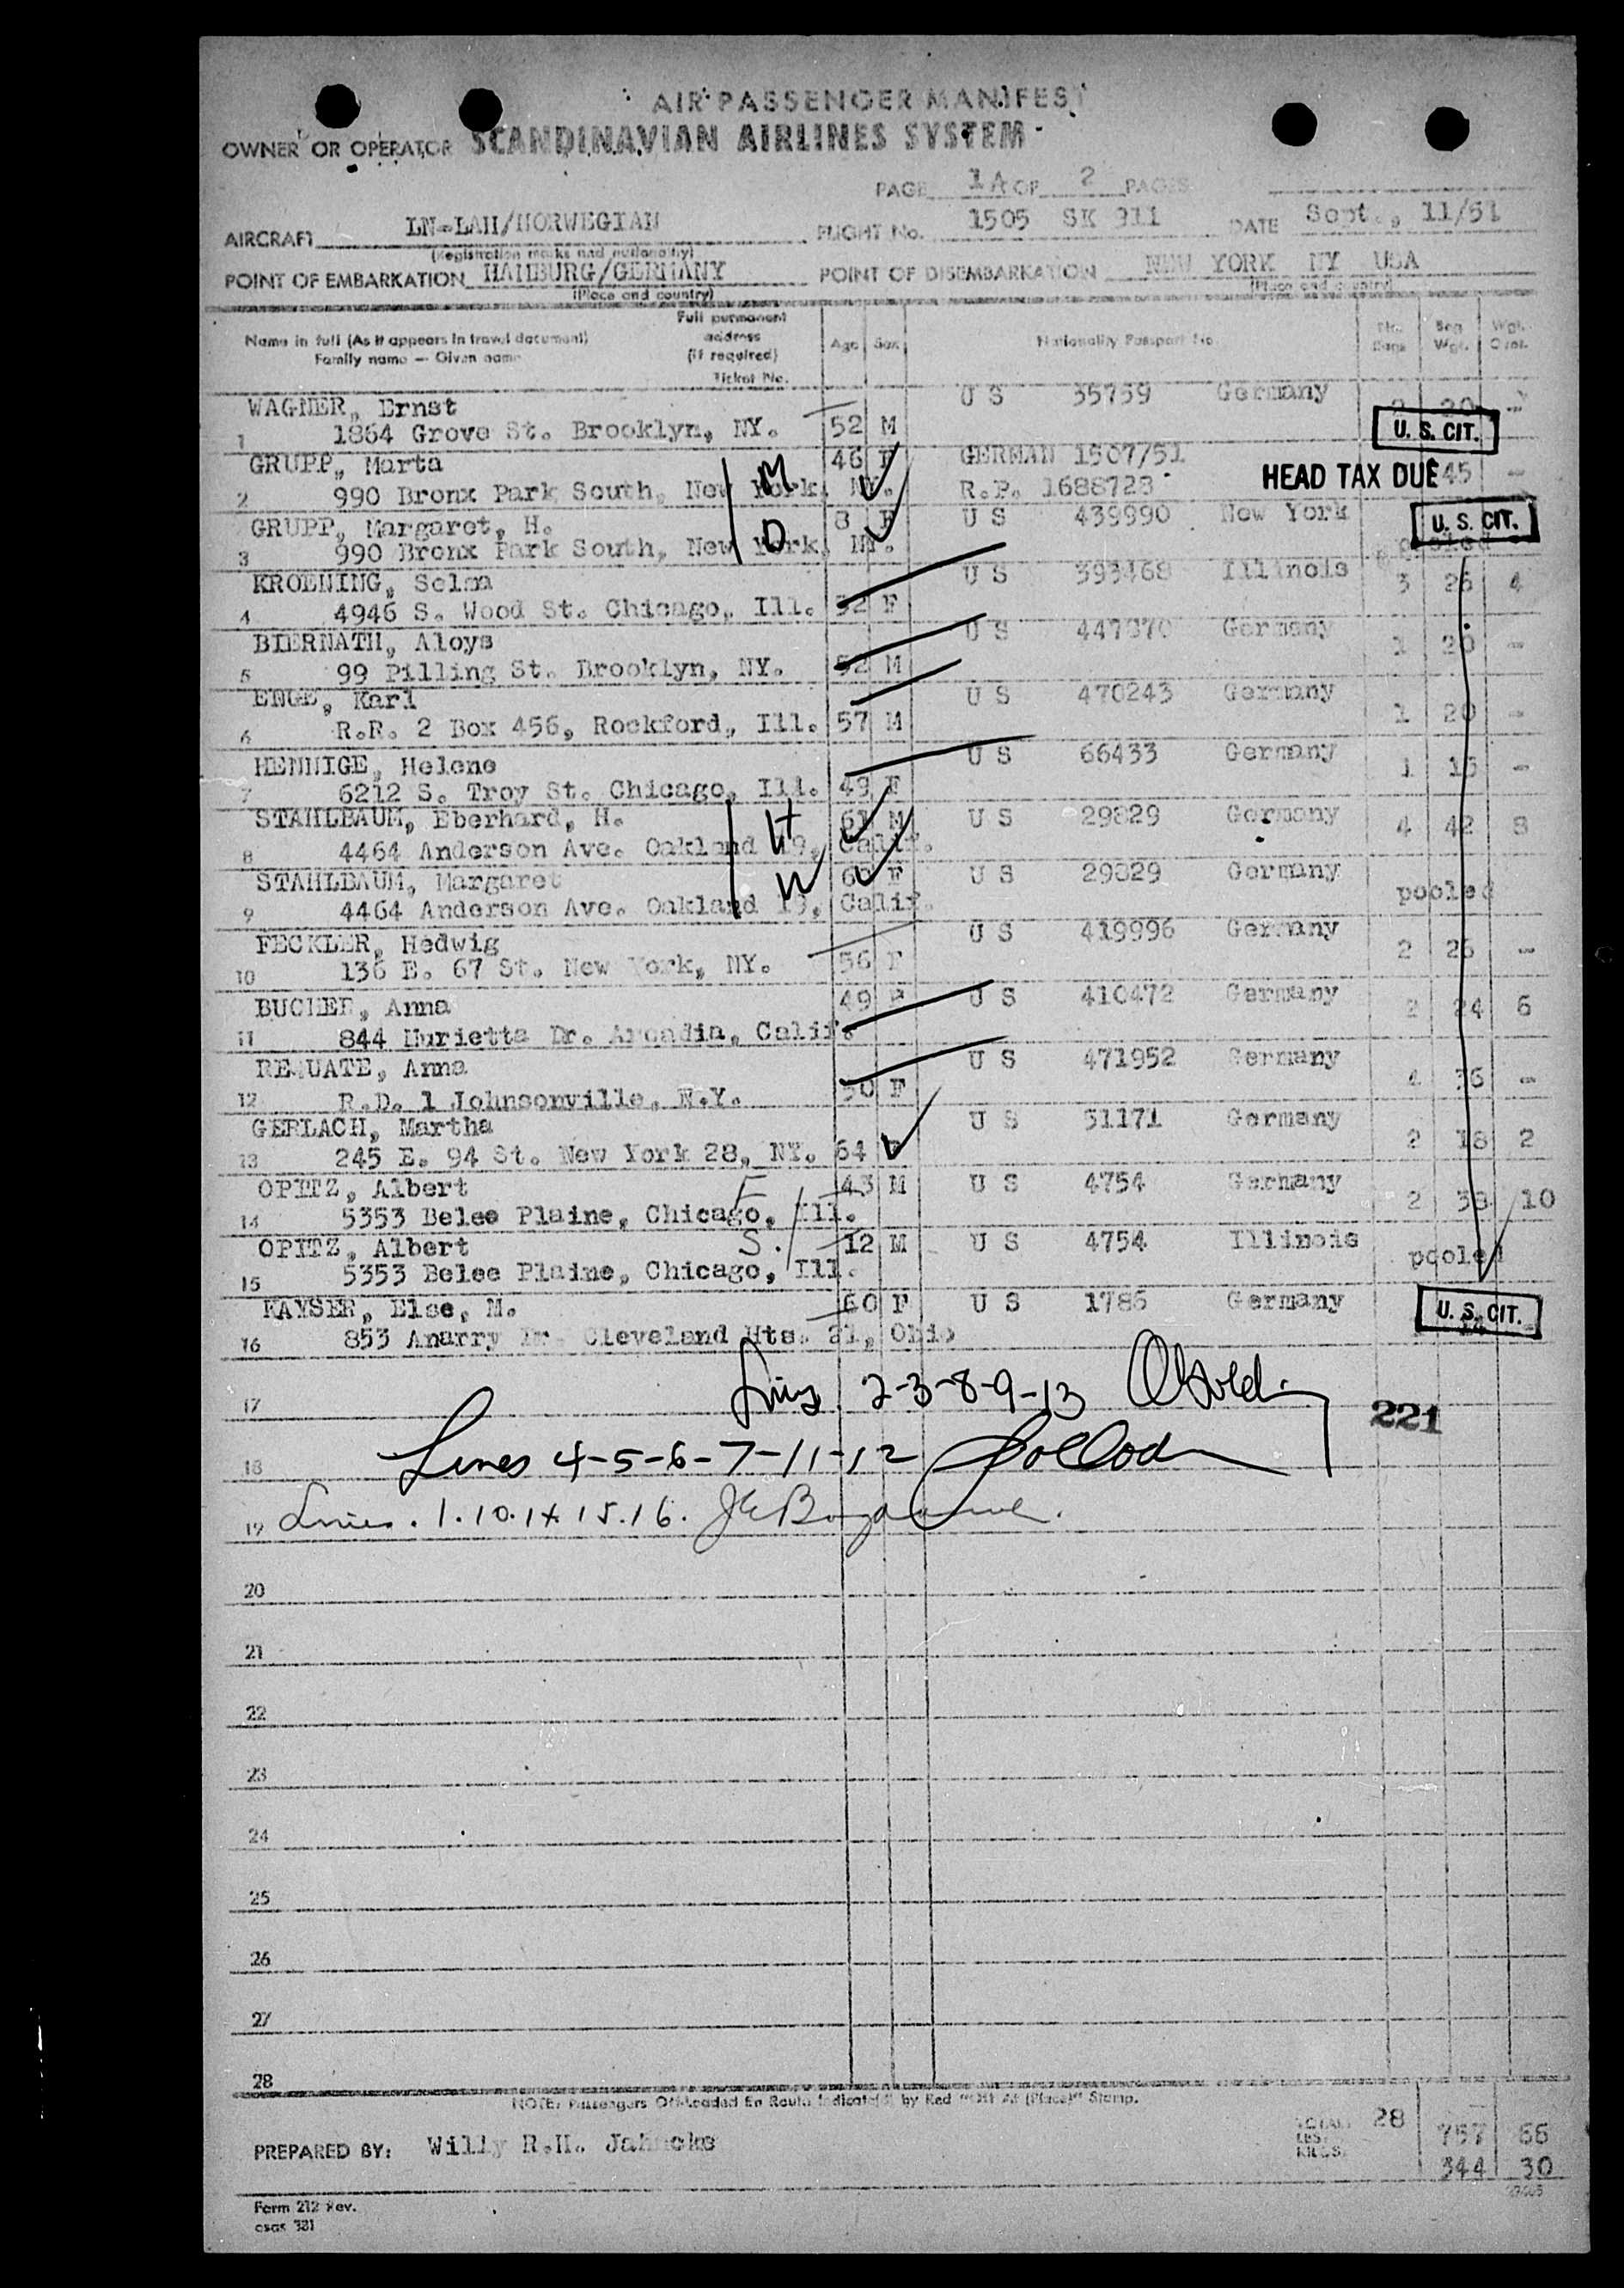 AIR PASSENGER MANIFEST
OWNER OR OPERATOR SCANDINAVIAN AIRLINES SYSTEM
PAGE 1A OF 2 PAGES
AIRCRAFT LN-LAH/NORWEGIAN FLIGHT No. 1505 SK 911 DATE Sept., 11/51
(Registration marks and nationality)
POINT OF EMBARKATION HAMBURG/GERMANY POINT OF DISEMBARKATION NEW YORK NY USA
(Place and country) (Place and country)
Name in full (As it appears in travel document) Family name — Given name Full permanent address (if required) Ticket No. Age Sex Nationality Passport No. No. Bags Bag Wgt. Wgt.
WAGNER, Ernst U S 35759 Germany 2 20 -
1 1864 Grove St. Brooklyn, NY. 52 M U. S. CIT.
GRUPP, Marta M 46 F GERMAN 1507/51
2 990 Bronx Park South, New York, NY. R.P. 1688723 HEAD TAX DUE 45 -
GRUPP, Margaret, H. D 8 F U S 439990 New York U. S. CIT.
3 990 Bronx Park South, New York, NY. pooled
KROENING, Selma U S 393468 Illinois 3 26 4
4 4946 S. Wood St. Chicago, Ill. 52 F
BIERNATH, Aloys U S Germany 1 20 -
5 99 Pilling St. Brooklyn, NY. 52 M
ENGE, Karl U S 470243 Germany 1 20 -
6 R.R. 2 Box 456, Rockford, Ill. 57 M
HENNIGE, Helene U S 66433 Germany 1 15 -
7 6212 S. Troy St. Chicago, Ill. 49 F
STAHLBAUM, Eberhard, H. H 61 M U S 29829 Germany 4 42 8
8 4464 Anderson Ave. Oakland 19, Calif.
STAHLBAUM, Margaret W 60 F U S 29829 Germany pooled
9 4464 Anderson Ave. Oakland 19, Calif.
FECKLER, Hedwig U S 419996 Germany 2 26 -
10 136 E. 67 St. New York, NY. 56 F
BUCHER, Anna 49 F U S 410472 Germany 2 24 6
11 844 Murietta Dr. Arcadia, Calif.
REQUATE, Anna U S 471952 Germany 4 36 -
12 R.D. 1 Johnsonville, N.Y. 50 F
GERLACH, Martha U S 51171 Germany 2 18 2
13 245 E. 94 St. New York 28, NY. 64 F
OPITZ, Albert F 43 M U S 4754 Germany 2 38 10
14 5353 Belee Plaine, Chicago, Ill.
OPITZ, Albert S. 12 M U S 4754 Illinois pooled
15 5353 Belee Plaine, Chicago, Ill.
KAYSER, Else, M. 60 F U S 1786 Germany U. S. CIT.
16 853 Anarry Dr. Cleveland Hts. 21, Ohio
17 Lines 2-3-8-9-13 221
18 Lines 4-5-6-7-11-12
19 Lines. 1.10.14 15.16.
20
21
22
23
24
25
26
27
28
NOTE: Passengers Off-Loaded En Route Indicated by Red "Off At (Place)" Stamp.
TOTAL 28
LBS. 757 66
PREPARED BY: Willy R.H. Jahncke
KILOS. 344 30
Form 212 Rev.
osas 381